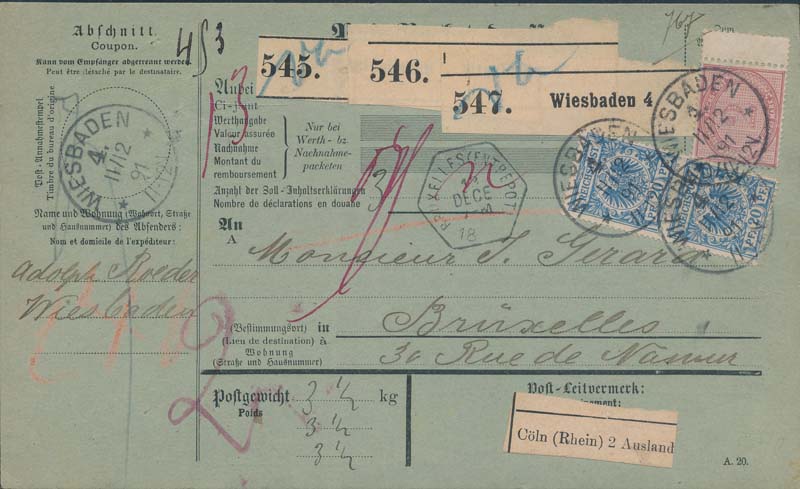 Abschnitt
Coupon.
Kann vom Empfänger abgetrennt werden.
Peut être détaché par le destinataire.
Post-Annahmestempel
Timbre du bureau d'origine
WIESBADEN
4.
11/12
91
Name und Wohnung (Wohnort, Straße
und Hausnummer) des Absenders:
Nom et domicile de l'expéditeur:
Adolph Roeder
Wiesbaden
453
545.
546.
547. Wiesbaden 4
Anbei
Ci-joint
Werthangabe
Valeur assurée
Nachnahme
Montant du
remboursement
Nur bei
Werth- bz
Nachnahme-
packeten
Anzahl der Zoll-Inhaltserklärungen
Nombre de déclarations en douane
3
BRUXELLES (ENTREPOT)
DECE
18
WIESBADEN
4.
11/12
91
WIESBADEN
4.
11/12
91
WIESBADEN
20 PF
20 PF
An
A
Monsieur J. Gerard
(Bestimmungsort) in
(Lieu de destination) à
Brüxelles
Wohnung
(Straße und Hausnummer)
30 Rue de Namur
Postgewicht
Poids
3 ½ kg
3 ½
3 ½
Post-Leitvermerk:
Cöln (Rhein) 2 Ausland
A. 20.